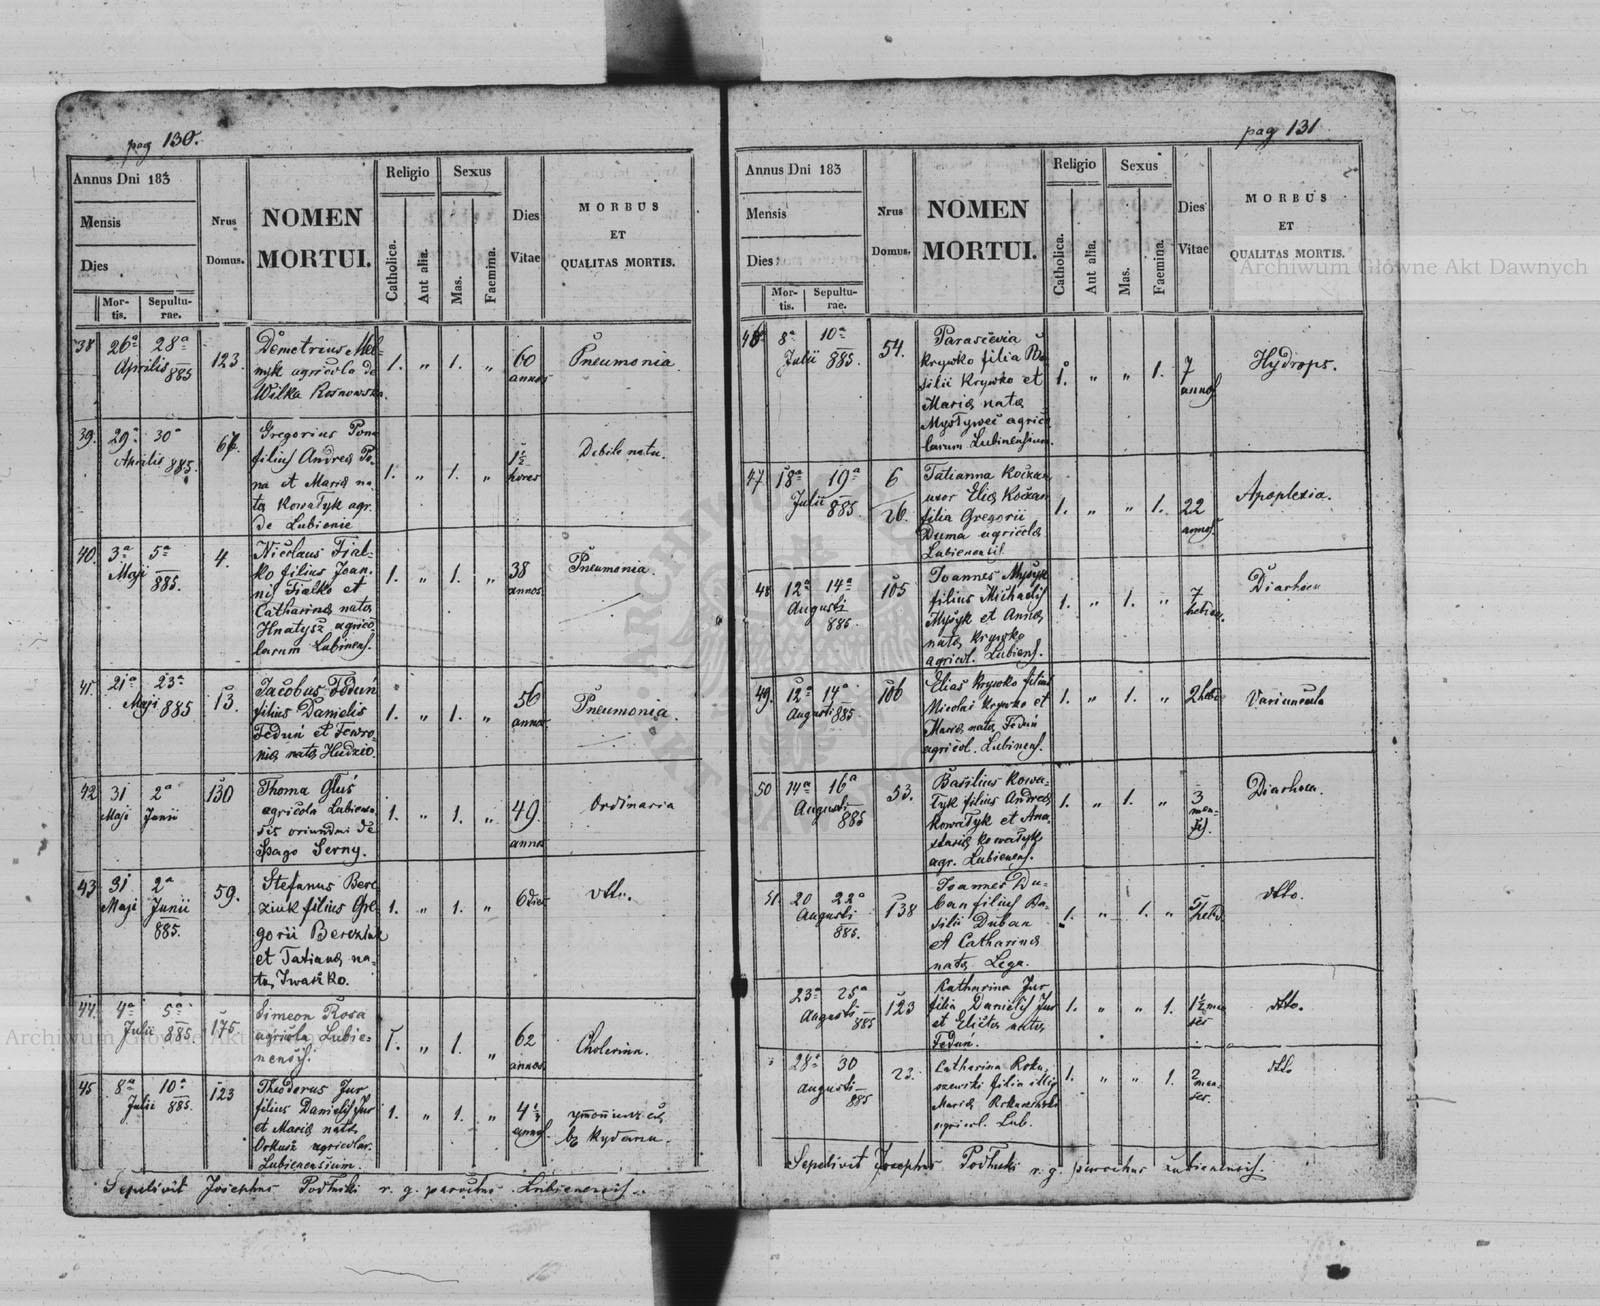 pag 130.
Annus Dni 183
Mensis
Dies
Mor-
tis.
Sepultu-
rae.
Nrus
Domus.
NOMEN
MORTUI.
Religio
Catholica.
Aut alia.
Sexus
Mas.
Faemina.
Dies
Vitae
MORBUS
ET
QUALITAS MORTIS.
38 26ª 28ª
Aprilis 885
123.
Demetrius Mel-
nyk agricola de
Wilka Rosnowska.
1. „ 1. „
60
annos
Pneumonia.
39. 29ª 30ª
Aprilis 885.
Gregorius Pona
filius Andreä Po-
na et Mariä na-
tä Kowałyk agr.
de Lubienie
1. „ 1. „
1½
hores
Debile natu.
40. 3ª 5ª
Maji 885.
4.
Nicolaus Fiał-
ko filius Joan-
nis Fiałko et
Catharinä natä
Hnatysz agrico
larum Lubinens.
1. „ 1. „
38
annos
Pneumonia.
41. 21ª 23ª
Maji 885
13.
Jacobus Feduń
filius Danielis
Feduń et Fewro-
niä natä Hudzio.
1. „ 1. „
56
annos
Pneumonia.
42 31 2ª
Maji Junii
130
Thoma Gluś
agricola Lubienen
sis oriundui de
Spago Serny.
1. „ 1. „
49.
annos
Ordinaria
43 31 2ª
Maji Junii
885.
59.
Stefanus Bere
ziuk filius Gre
gorii Bereziuk
et Tatianä na-
tä, Iwaśko.
1. „ 1. „
6 dies
dtto.
44. 4ª 5ª
Julii 885.
175.
Simeon Rosa
agricola Lubie-
nensis.
1. „ 1. „
62
annos
Cholerina.
45 8ª 10ª
Julii 885.
123
Theodorus Jur
filius Danielis Jur
et Mariä natä
Orkusz agricolar.
Lubienensium.
1. „ 1. „
annos
Sepelivit Josephus Podłuski r. g. parochus Lubienensis.
pag 131
Annus Dni 183
Mensis
Dies
Mor-
tis.
Sepultu-
rae.
Nrus
Domus.
NOMEN
MORTUI.
Religio
Catholica.
Aut alia.
Sexus
Mas.
Faemina.
Dies
Vitae
MORBUS
ET
QUALITAS MORTIS.
46 8ª 10ª
Julii 885.
54.
Parascevia
Krywko filia Ba
silii Krywko et
Mariä natä
Mystyweć agrico
larum Lubinensium.
1. „ „ 1.
7
annos
Hydrops.
47 18ª 19ª
Julii 885
6
26.
Tatianna Koczan
uxor Eliä Koczan
filia Gregorii
Duma agricolä
Lubienensis
1. „ „ 1.
22
annos
Apoplexia.
48 12ª 14ª
Augusti
885.
105
Joannes Mysyk
filius Michaelis
Mysyk et Annä
natä Krywko
agricol. Lubiens.
1. „ 1. „
7
hebdom.
Diarhoea
49. 12ª 14ª
Augusti 885.
106
Elias Krywko filius
Nicolai Krywko et
Mariä natä Feduń
agricol. Lubinens.
1. „ 1. „
50 14ª 16ª
Augusti
885
53.
Basilius Kowa-
łyk filius Andreä
Kowałyk et Ana-
stasiä Kowałyk
agr. Lubienens.
1. „ 1. „
3
men-
ses.
Diarhoea.
51. 20 22ª
Augusti
885.
138
Joannes Du-
ban filius Ba-
silii Duban
et Catharinä
natä Lega.
1. „ 1. „
dtto.
23ª 25ª
Augusti
885
123
Katharina Jur
filia Danielis Jur
et Elictä natä
Feduń.
1. „ „ 1.
1½ men
ses
dtto.
28ª 30
Augusti
885
23.
Catharina Roku,
szewski filia illeg
Mariä
agricol. Lub.
1. „ „ 1.
2 men-
ses.
dtto
Sepelivit Josephus Podłuski r. g. parochus Lubienensis.
Archiwum Główne Akt Dawnych
Archiwum Główne Akt